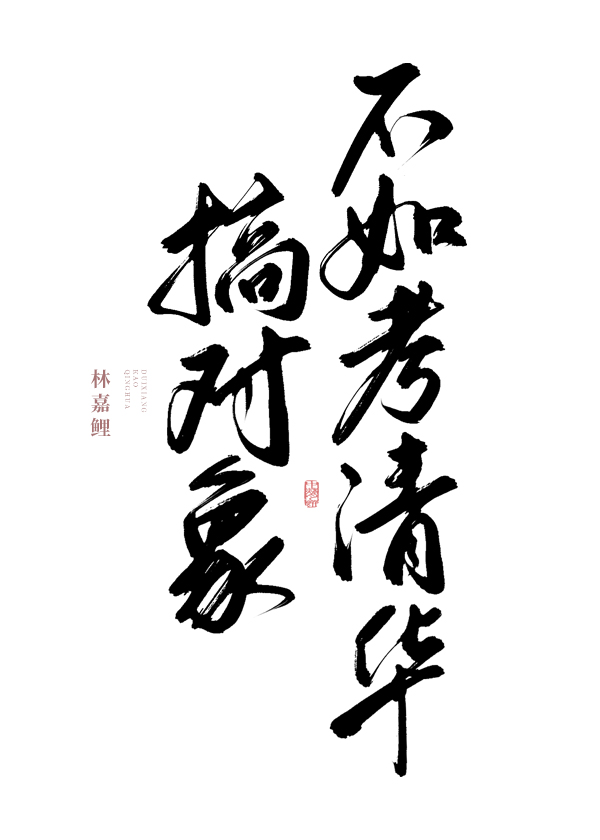 搞对象
不如考清华
DUIXIANG
KAO
QINGHUA
林嘉鲤